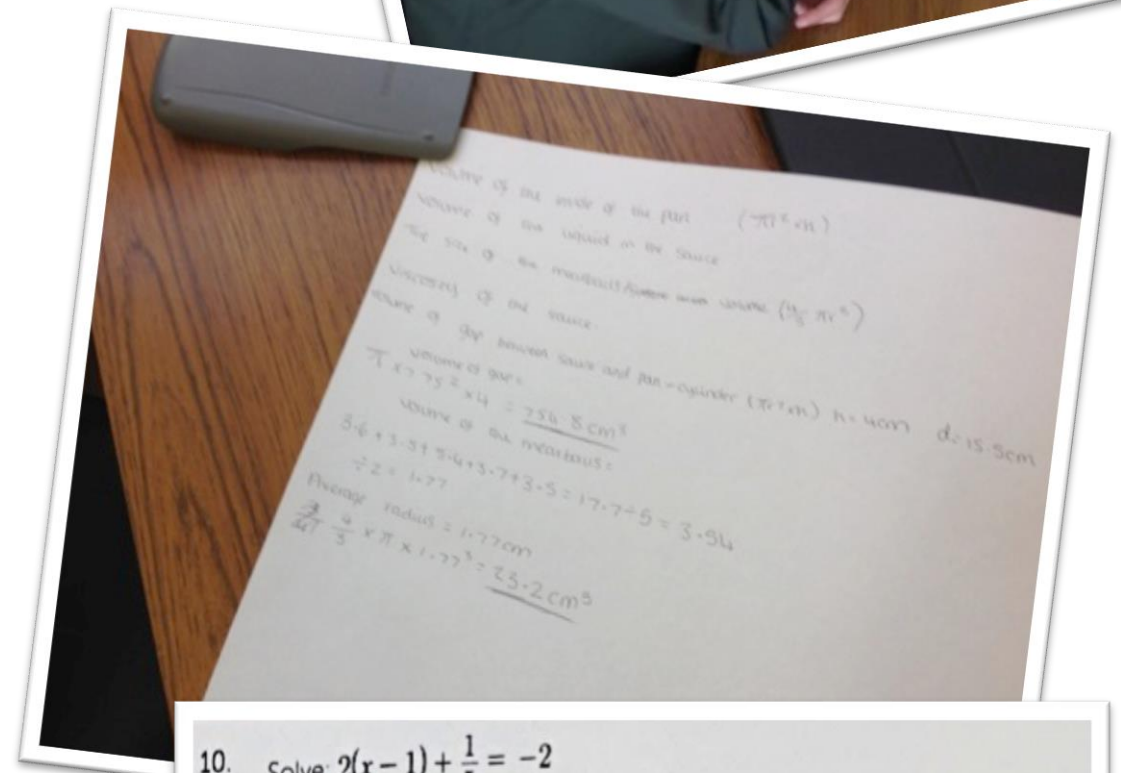 Volume of the inside of the pan (πr²×h)
Volume of the liquid in the sauce
The size of the meatballs volume (4/3 πr³)
Viscosity of the sauce.
Volume of gap between sauce and pan = cylinder (πr²×h) h=4cm d=15.5cm
Volume of gap=
π×7.75²×4 = 754.8cm³
Volume of the meatballs=
3.6+3.5+3.4+3.7+3.5=17.7÷5=3.54
÷2=1.77
Average radius = 1.77cm
4/3 ×π×1.77³=23.2cm³
10. Solve: 2(x − 1) + = −2